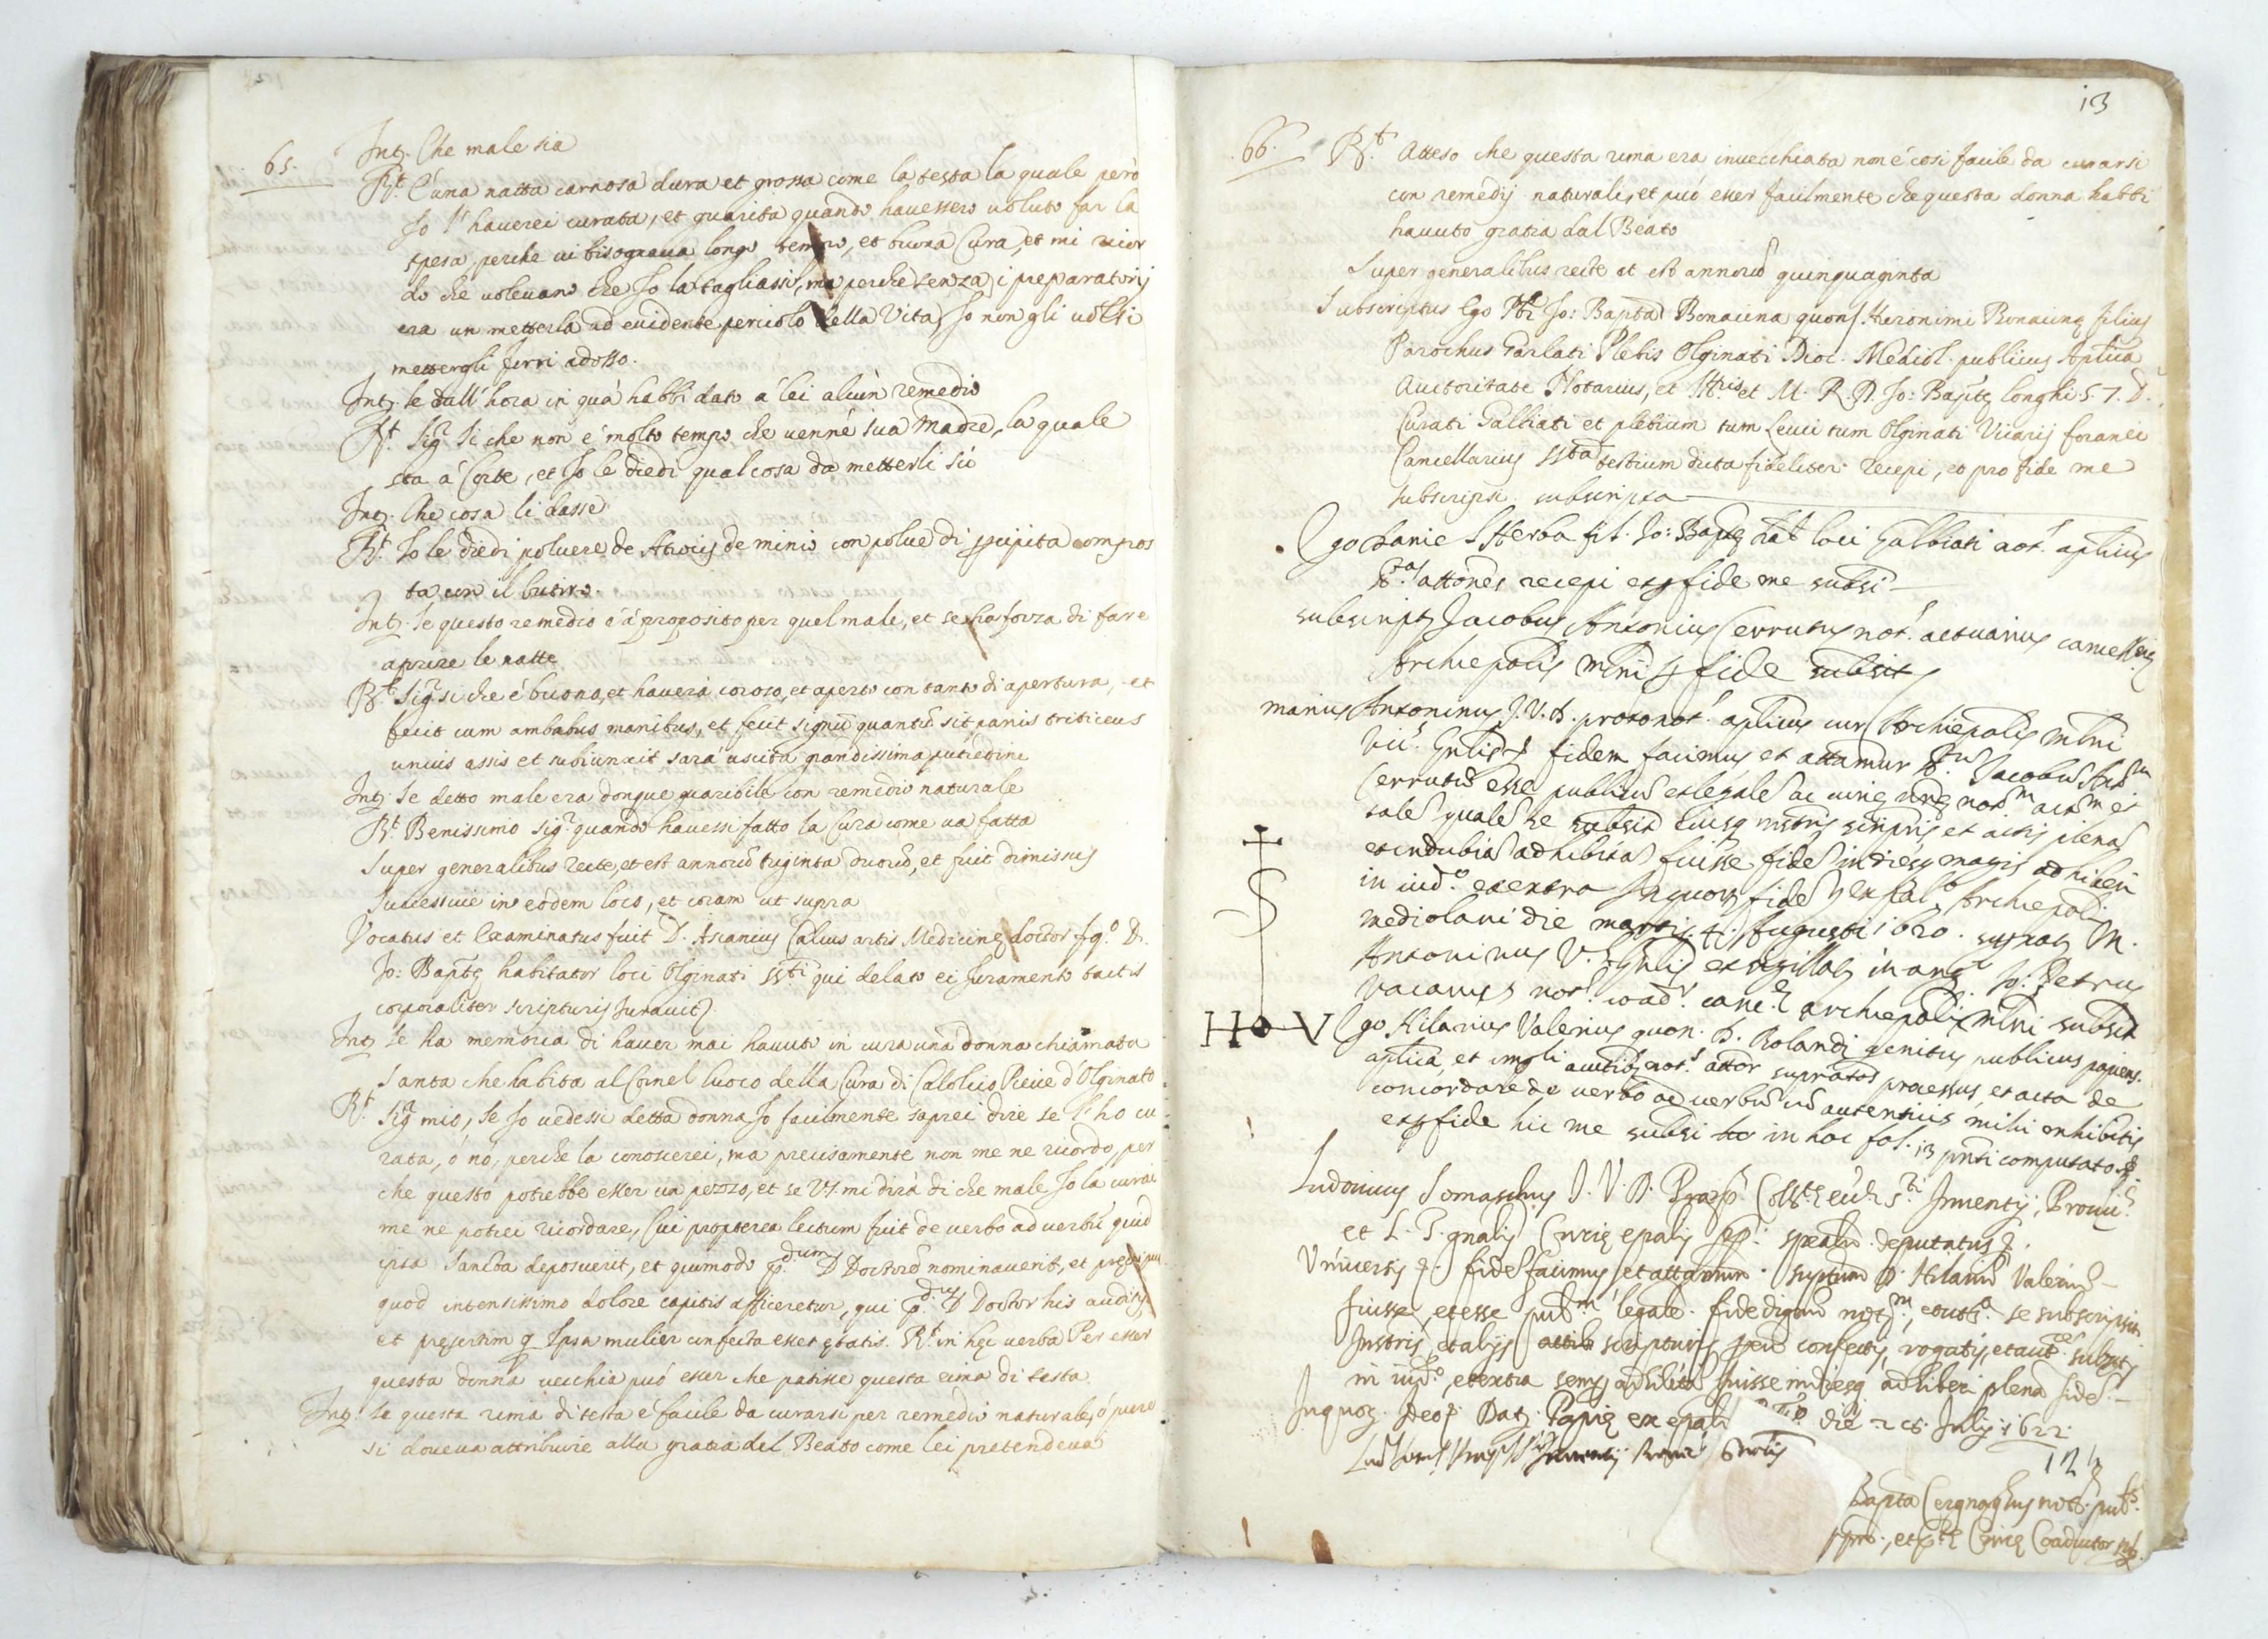 65.
Int. Che male sia
Rt. È una natta carnosa dura et grossa come la testa la quale però
Io l'haverei curata, et guarita quando havessero voluto far la
spesa, perche vi bisognava longo tempo, et buona cura, et mi ricor
do che volevano che Io la tagliassi, ma perche senza i preparatorij
era un metterla ad evidente pericolo della Vita, Io non gli volsi
mettergli ferri adosso.
Int. Se dall'hora in quà habbi dato à lei alcun remedio
Rt. Sigr. Si che non è molto tempo che venne sua Madre, la quale
sta à Corte, et Io le diedi qualcosa da metterli sù
Int. Che cosa li dasse
Rt. Io le diedi polvere de de minio con polve di compos
ta con il butiro.
Int. Se questo remedio è à proposito per quel male, et se ha forza di fare
aprire le natte
Rt. Sigr. si che è buona, et haverà coroso, et aperto con tanto di apertura, et
fecit cum ambabus manibus, et fecit signū quantū sit panis triticeus
unius assis et subiunxit sarà uscita grandissima putredine
Int. Se detto male era donque guaribile con remedio naturale
Rt. Benissimo Sigr. quando havessi fatto la Cura come va fatta
Super generalibus recte, et est annorū triginta duorū, et fuit dimissus
Successive in eodem loco, et coram ut supra
Vocatus et Examinatus fuit D. Ascanius Calvus artis Medicinę doctor fq.o D.
Jo: Baptę habitator loci Olginati ss.ti qui delato ei Juramento tactis
corporaliter scripturis Juravit
Int. Se ha memoria di haver mai havuto in cura una donna chiamata
Santa che habita al Cornel luoco della Cura di Calolcio Pieve d'Olginato
Rt. Sigr. mio, se Io vedessi detta donna Io facilmente saprei dire se l'ho cu
rata, ó nó, perche la conoscerei, ma precisamente non me ne ricordo, per
che questo potrebbe esser un pezzo, et se V.S. mi dirà di che male Io la curai
me ne potrei ricordare, Cui propterea lectum fuit de verbo ad verbū quid
ipsa Sancta deposuerit, et quomodo p.dum D Doctorē nominaverit, et
quod intensissimo dolore capitis afficeretur, qui p.dus D Doctor his auditis
et presertim q. Ipsa mulier confecta esset ętatis. Rt. in hęc verba Per esser
questa donna vecchia può esser che patisse questa rima di testa
Int. Se questa rima di testa è facile da curarsi per remedio naturale, ò pure
si doveva attribuire alla gratia del Beato come lei pretendeva
13
66.
Rt. Atteso che questa rima era invecchiata non è così facile da curarsi
con remedij naturali, et può esser facilmente che questa donna habbi
havuto gratia dal Beato
Super generalibus recte et est annorū quinquaginta
Subscriptus Ego Pbr Jo: Bapta Bonacina quon. Hieronimi Bonacinę filius
Parochus Garlati Plebis Olginati Dioc. Mediol. publicus Aplica
Auctoritate Notarius, et Ill.ris et M. R. D. Jo: Baptę Longhi S. T. D.
Curati Galbiati et plebium tum Leuci tum Olginati Vicarij foranei
Cancellarius ss.ta testium dicta fideliter recepi, et pro fide me
subscripsi. subscripta
Ego Danie Herba fil. Jo: Baptę hab loci Galbiati not. aplicus
attōnes recepi et p fide me subsi
subscript Jacobus Antonius Cerrutus not. actuarius cancellrię
Archiepalis Mlni p fide subsit
Marius Antoninus J. V. D. protonot. aplicus cur Archiepalis Mlni
Vic. Gnlis fidem facimus et attamur Jacobū Ant.m
Cerrutū esse publicū et legalē ac not.m act.m et
talē qualē se subsit Eiusq scripris et actis plenā
et indubiā adhibitā fuisse fidē indiesq magis adhiberi
in iud.o et extra In quor fidē Ex Pal.o Archiepali
Mediolani die martis 4. Augusti 1620. M.
Antoninus V. Gnlis et sigillat Jo: Petrus
Vacanus not. coad. canc. Archiepalis Mlni subsit
H V
Ego Hilarius Valerius quon. D. Rolandi genitus publicus papiens.
aplica, et impli auctis not. attor supratos processus, et acta de
concordare de verbo ad verbū cū autenticis mihi exhibitis
et p fide hic me subsi in hoc fol. 13 pnti computato
Ludovicus Somaschus J. V. D. S.ti Inventij, Provic.
et L. T. gnalis Curię epalis deputatus.
Universis fidē facimus et attamur suptum D. Hilariū Valeriū
fuisse, et esse pub.m legale. fide dignū not.m, se subscripsit
Instris, et alijs scripturis confectis, rogatis, et subsctis
in iud.o, et extra semp adhibitā fuisse indiesq adhiberi plenā fidē.
In quor. Dat. Papię ex epali die 26. Julij 1622.
124
Bapta not. pub.
et Curię Coadiutor